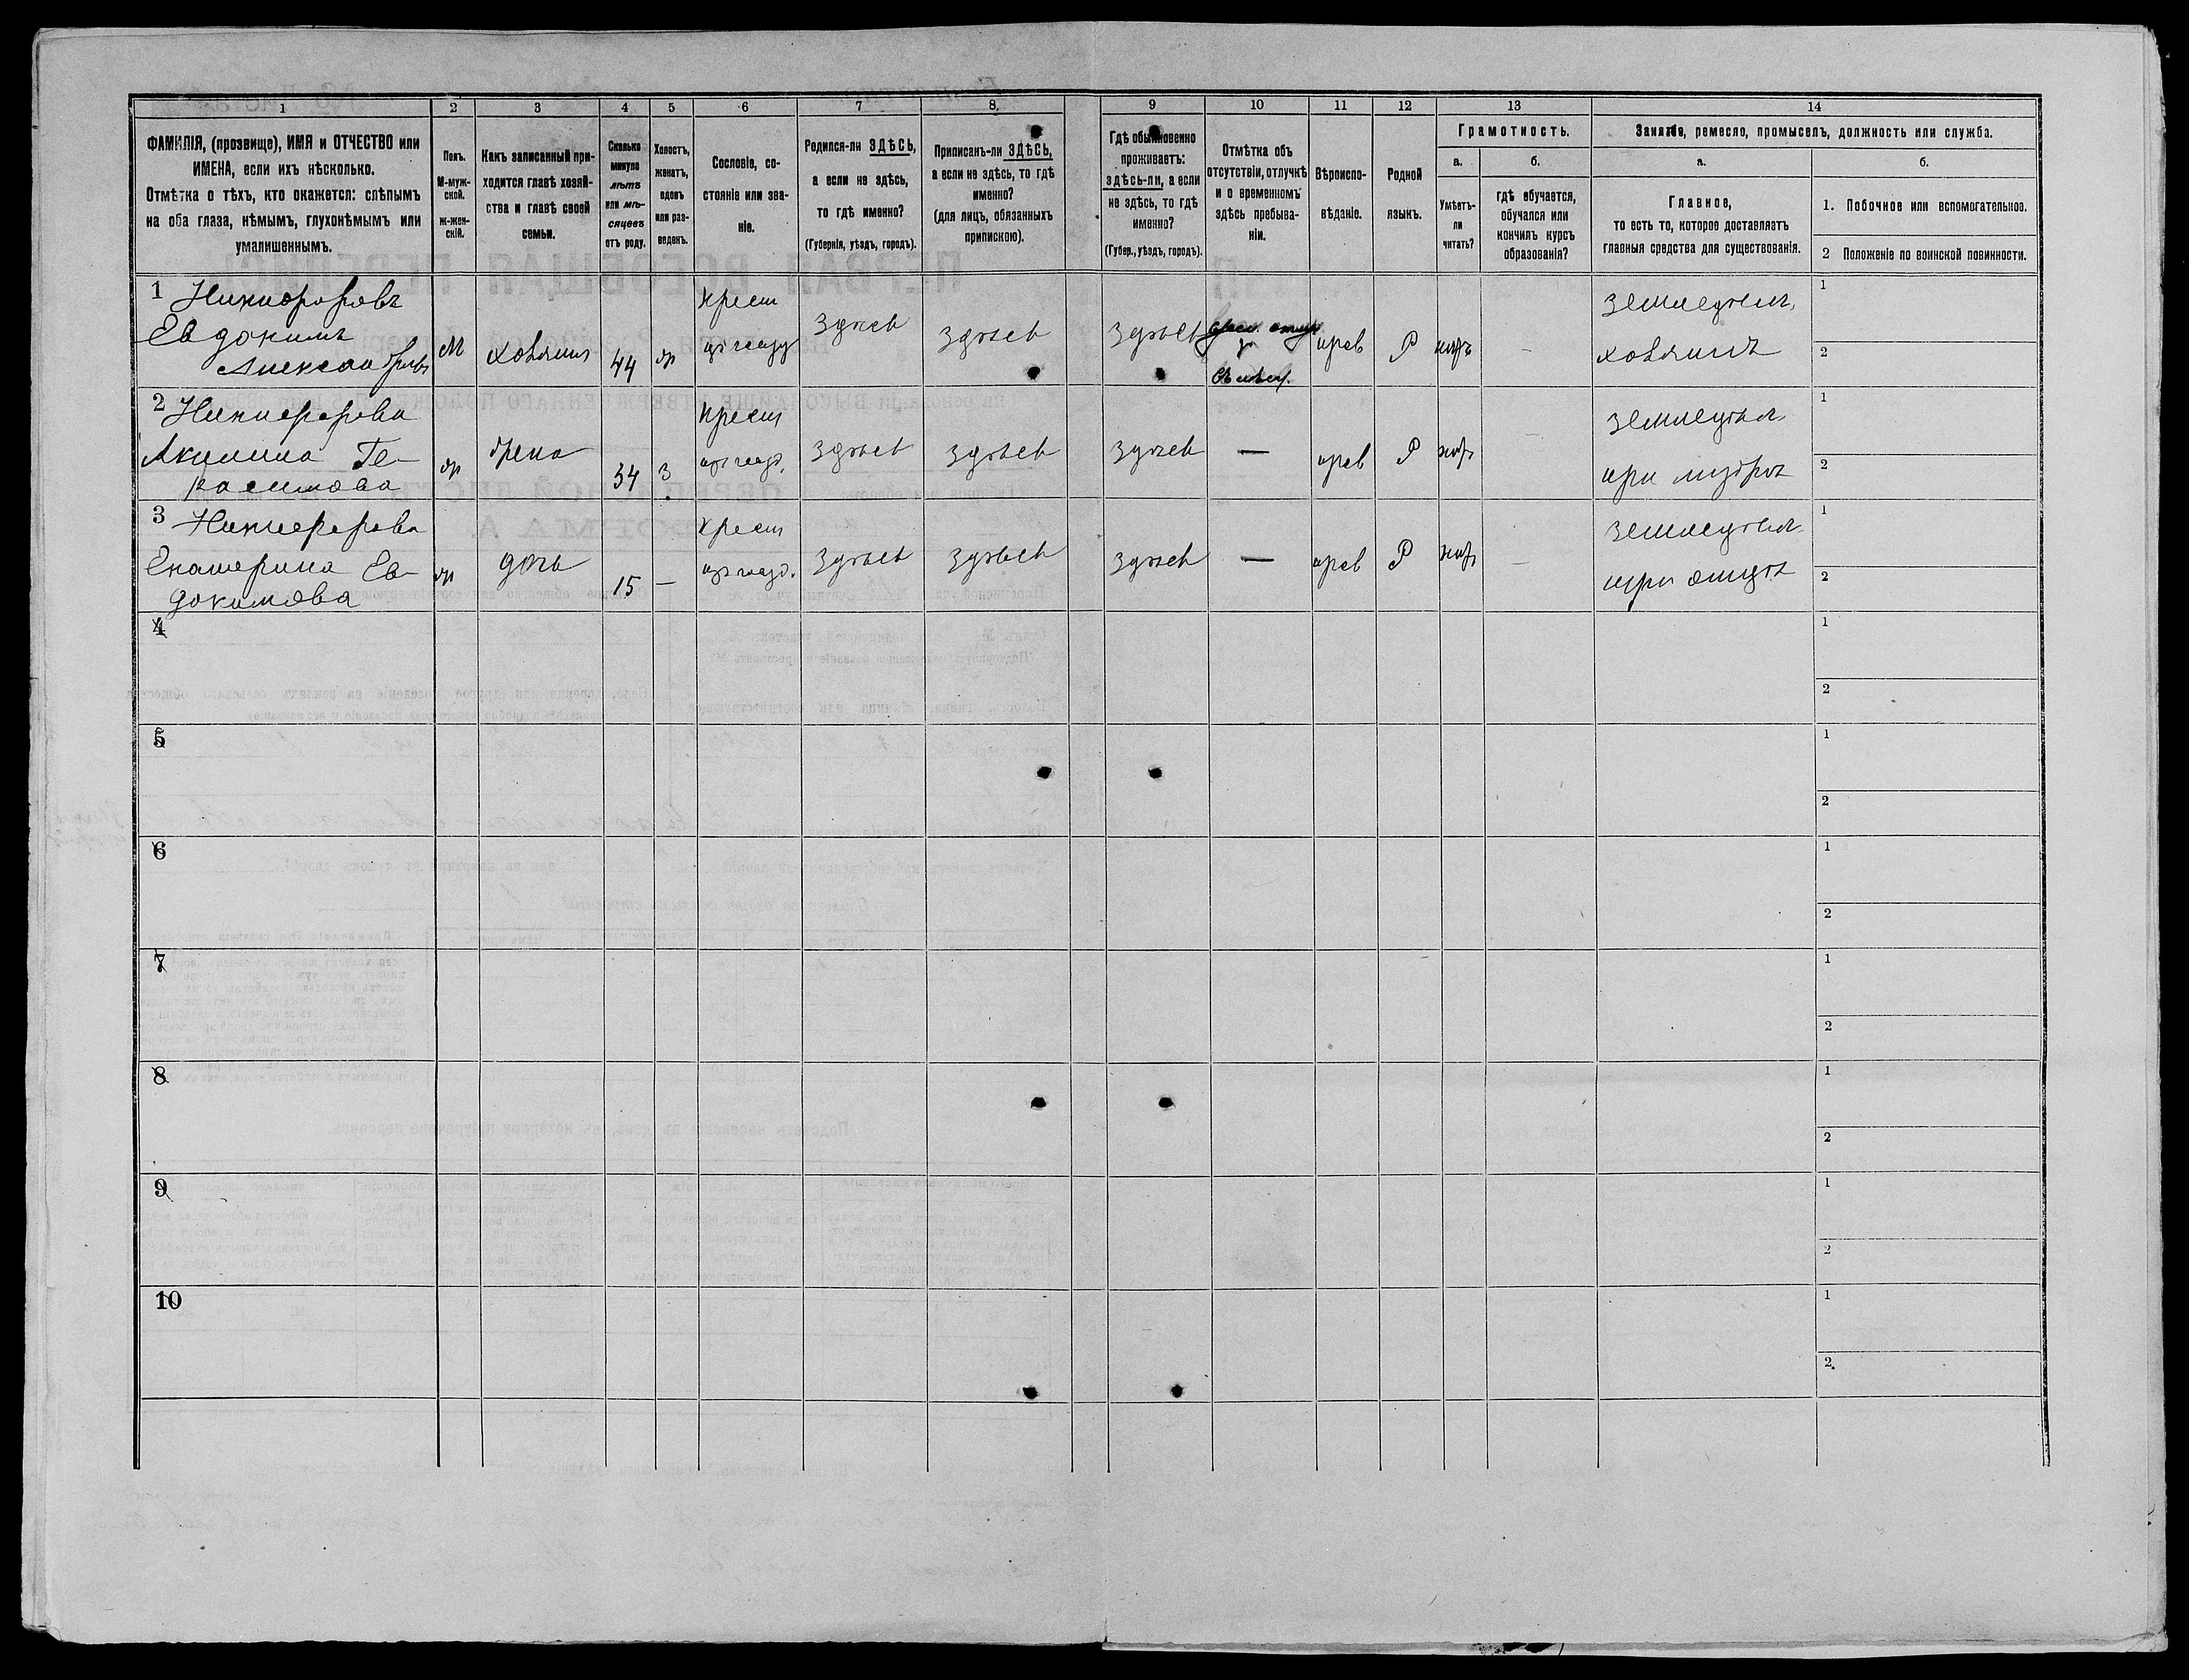 1 2 3 4 5 6 7 8. 9 10 11 12 13 14
ФАМИЛІЯ, (прозвище), ИМЯ и ОТЧЕСТВО или
ИМЕНА, если ихъ нѣсколько.
Отмѣтка о тѣхъ, кто окажется: слѣпымъ
на оба глаза, нѣмымъ, глухонѣмымъ или
умалишеннымъ.
Полъ.
М-муж-
ской.
ж-жен-
скій.
Какъ записанный при-
ходится главѣ хозяй-
ства и главѣ своей
семьи.
Сколько
минуло
лѣтъ
или мѣ-
сяцевъ
отъ роду.
Холостъ,
женатъ,
вдовъ
или раз-
веденъ.
Сословіе, со-
стояніе или зва-
ніе.
Родился-ли ЗДѢСЬ,
а если не здѣсь,
то гдѣ именно?
(Губернія, уѣздъ, городъ).
Приписанъ-ли ЗДѢСЬ,
а если не здѣсь, то гдѣ
именно?
(для лицъ, обязанныхъ
припискою).
Гдѣ обыкновенно
проживаетъ:
здѣсь-ли, а если
не здѣсь, то гдѣ
именно?
(Губер., уѣздъ, городъ).
Отмѣтка объ
отсутствіи, отлучкѣ
и о временномъ
здѣсь пребыва-
ніи.
Вѣроиспо-
вѣданіе.
Родной
языкъ.
Грамотность.
а.
Умѣетъ-
ли
читать?
б.
гдѣ обучается,
обучался или
кончилъ курсъ
образованія?
Занятіе, ремесло, промыселъ, должность или служба.
а.
Главное,
то есть то, которое доставляетъ
главныя средства для существованія.
б.
1. Побочное или вспомогательное.
2 Положеніе по воинской повинности.
1 Никифоровъ
Евдокимъ
Александровъ
М
хозяинъ
44
ж
крест
здѣсь
здѣсь
здѣсь
прав
Р
—
земледѣл.
хозяинъ
1
2
2 Никифорова
Акилина Ге-
расимова
ж
жена
34
з
крест
здѣсь
здѣсь
здѣсь
—
прав
Р
—
земледѣл
при мужѣ
1
2
3 Никифорова
Екатерина Ев-
докимова
ж
дочь
15
—
крест
здѣсь
здѣсь
здѣсь
—
прав
Р
—
земледѣл
при отцѣ
1
2
4
1
2
5
1
2
6
1
2
7
1
2
8
1
2
9
1
2
10
1
2.